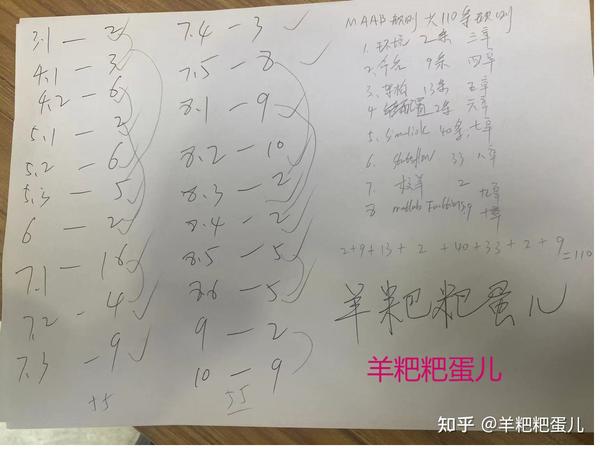 3.1 — 2
4.1 — 3
4.2 — 6
5.1 — 2
5.2 — 6
5.3 — 5
6 — 2
7.1 — 16
7.2 — 4
7.3 — 9
55
7.4 — 3
7.5 — 8
8.1 — 9
8.2 — 10
8.3 — 2
8.4 — 2
8.5 — 5
8.6 — 5
9 — 2
10 — 9
55
MAAB规则 共110条规则
1. 环境 2条 三章
2. 命名 9条 四章
3. 架构 13条 五章
4 配置 2条 六章
5. Simulink 40条, 七章
6. Stateflow 33 八章
7. 2 九章
8 matlab Functions 9 十章
2+9+13+2+40+33+2+9
=110
羊粑粑蛋儿
羊粑粑蛋儿
知乎 @羊粑粑蛋儿